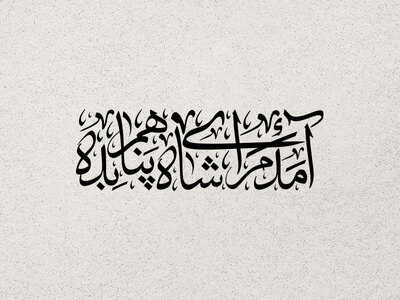 آمدم ای شاه پناهم بده